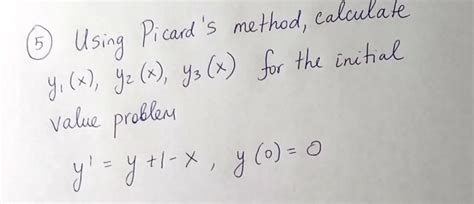 ⑤ Using Picard's method, calculate
y₁(x), y₂(x), y₃(x) for the initial
value problem
y' = y + 1 - x, y(0) = 0